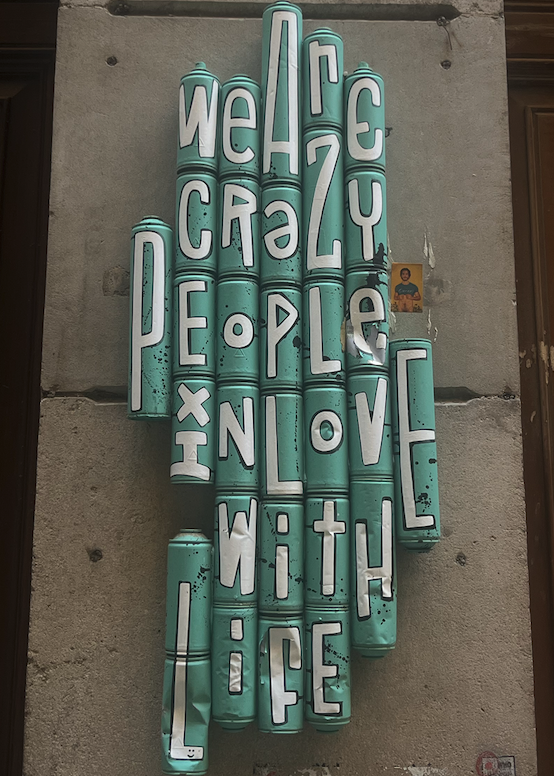 weAre
CRaZY
PEoPLe
x
INLOVE
WiTH
LiFE